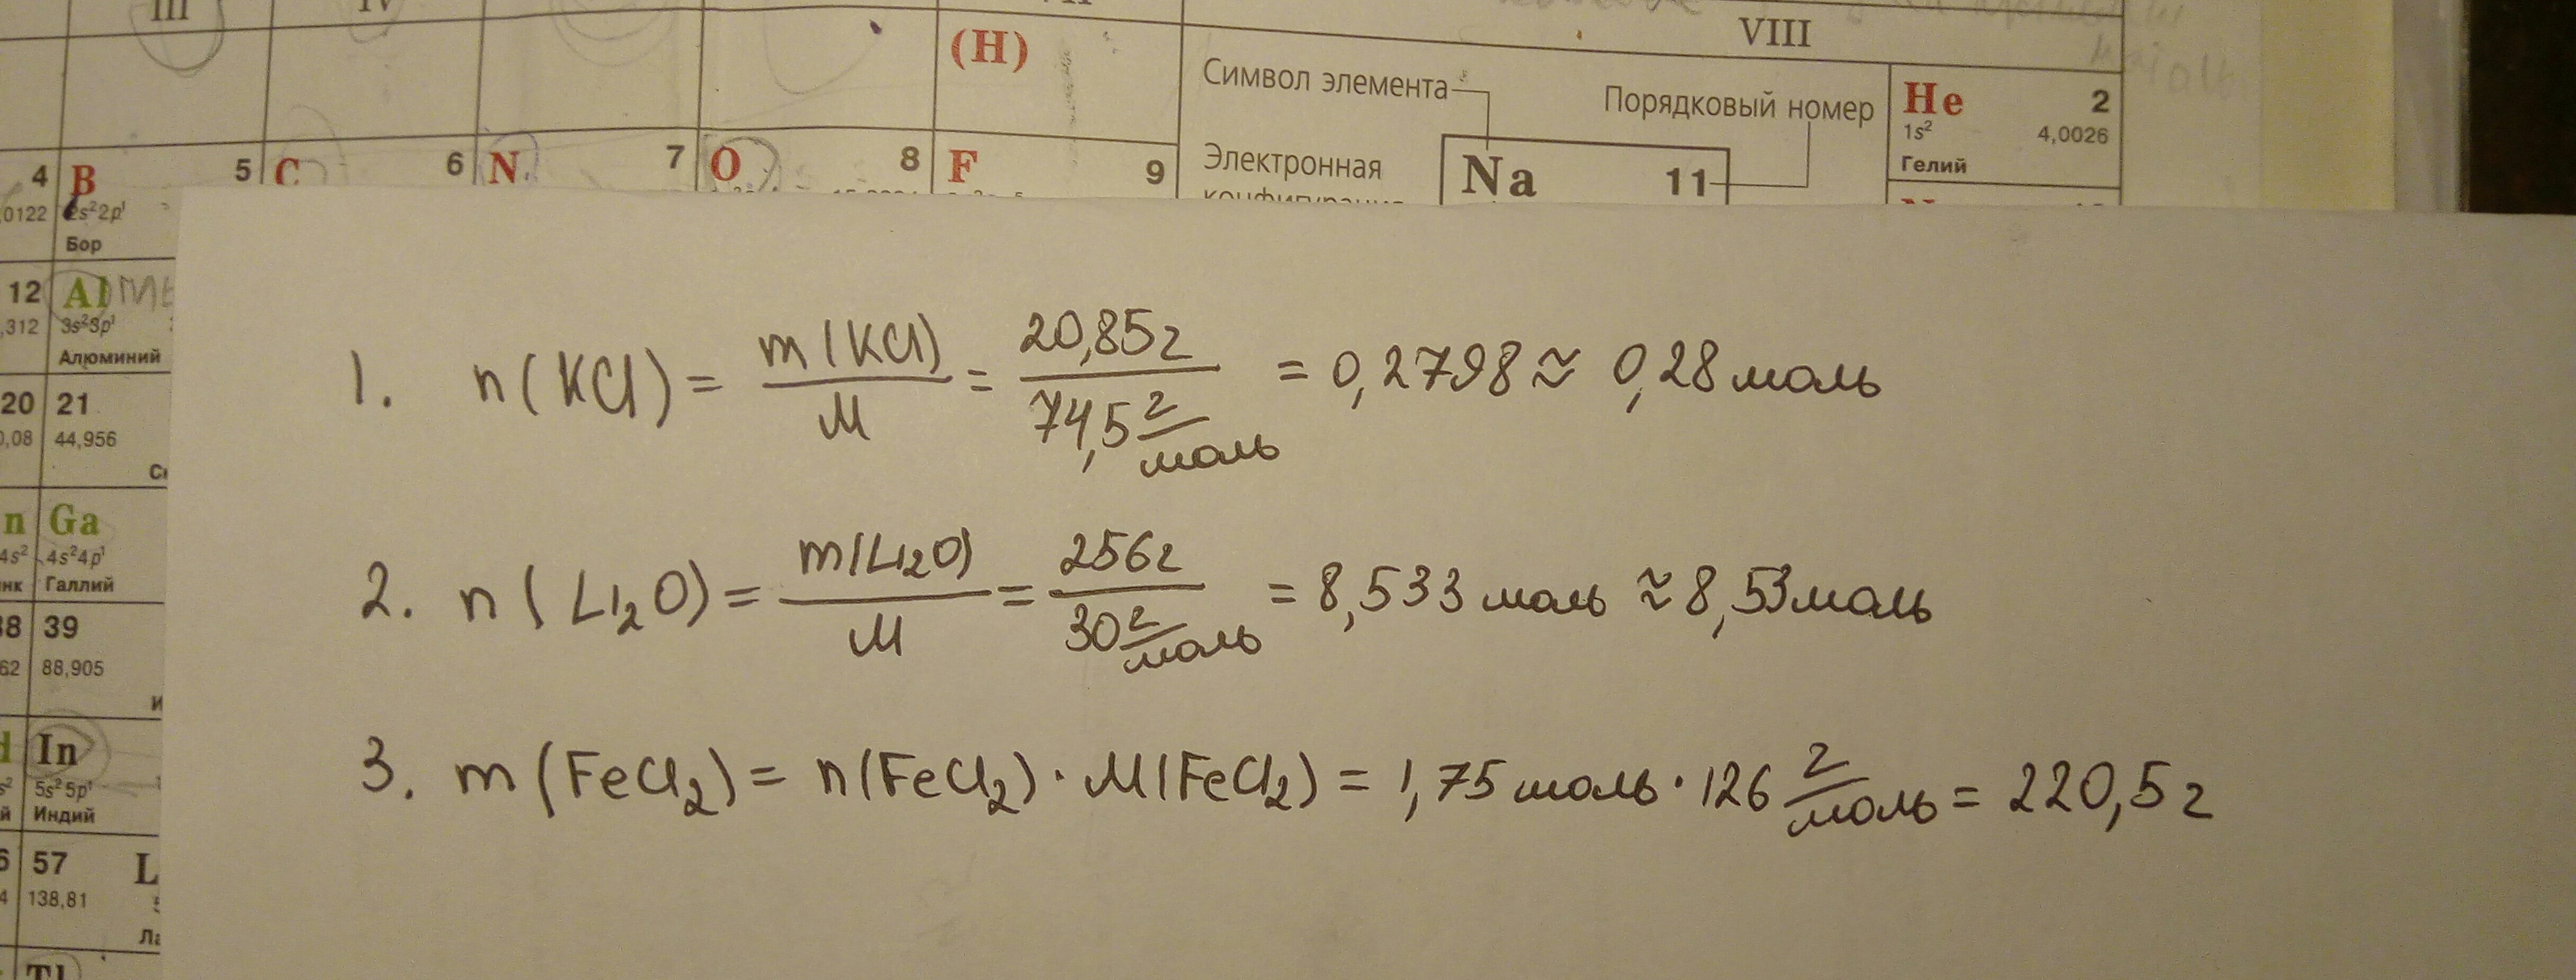 III IV
VIII
(H)
Символ элемента
Порядковый номер
He 2
1s² 4,0026
Гелий
4 B 5 C 6 N 7 O 8 F 9
Электронная
Na 11
,0122 2s²2p¹
Бор
12 Al
,312 3s²3p¹
Алюминий
20 21
0,08 44,956
n Ga
4s² 4s²4p¹
нк Галлий
39
62 88,905
In
s² 5s²5p¹
й Индий
57 L
4 138,81
Ла
Tl
1. n(KCl) = m(KCl)/M = 20,85г/74,5 г/моль = 0,2798 ≈ 0,28 моль
2. n(Li₂O) = m(Li₂O)/M = 256г/30 г/моль = 8,533 моль ≈ 8,53 моль
3. m(FeCl₂) = n(FeCl₂) · M(FeCl₂) = 1,75 моль · 126 г/моль = 220,5 г